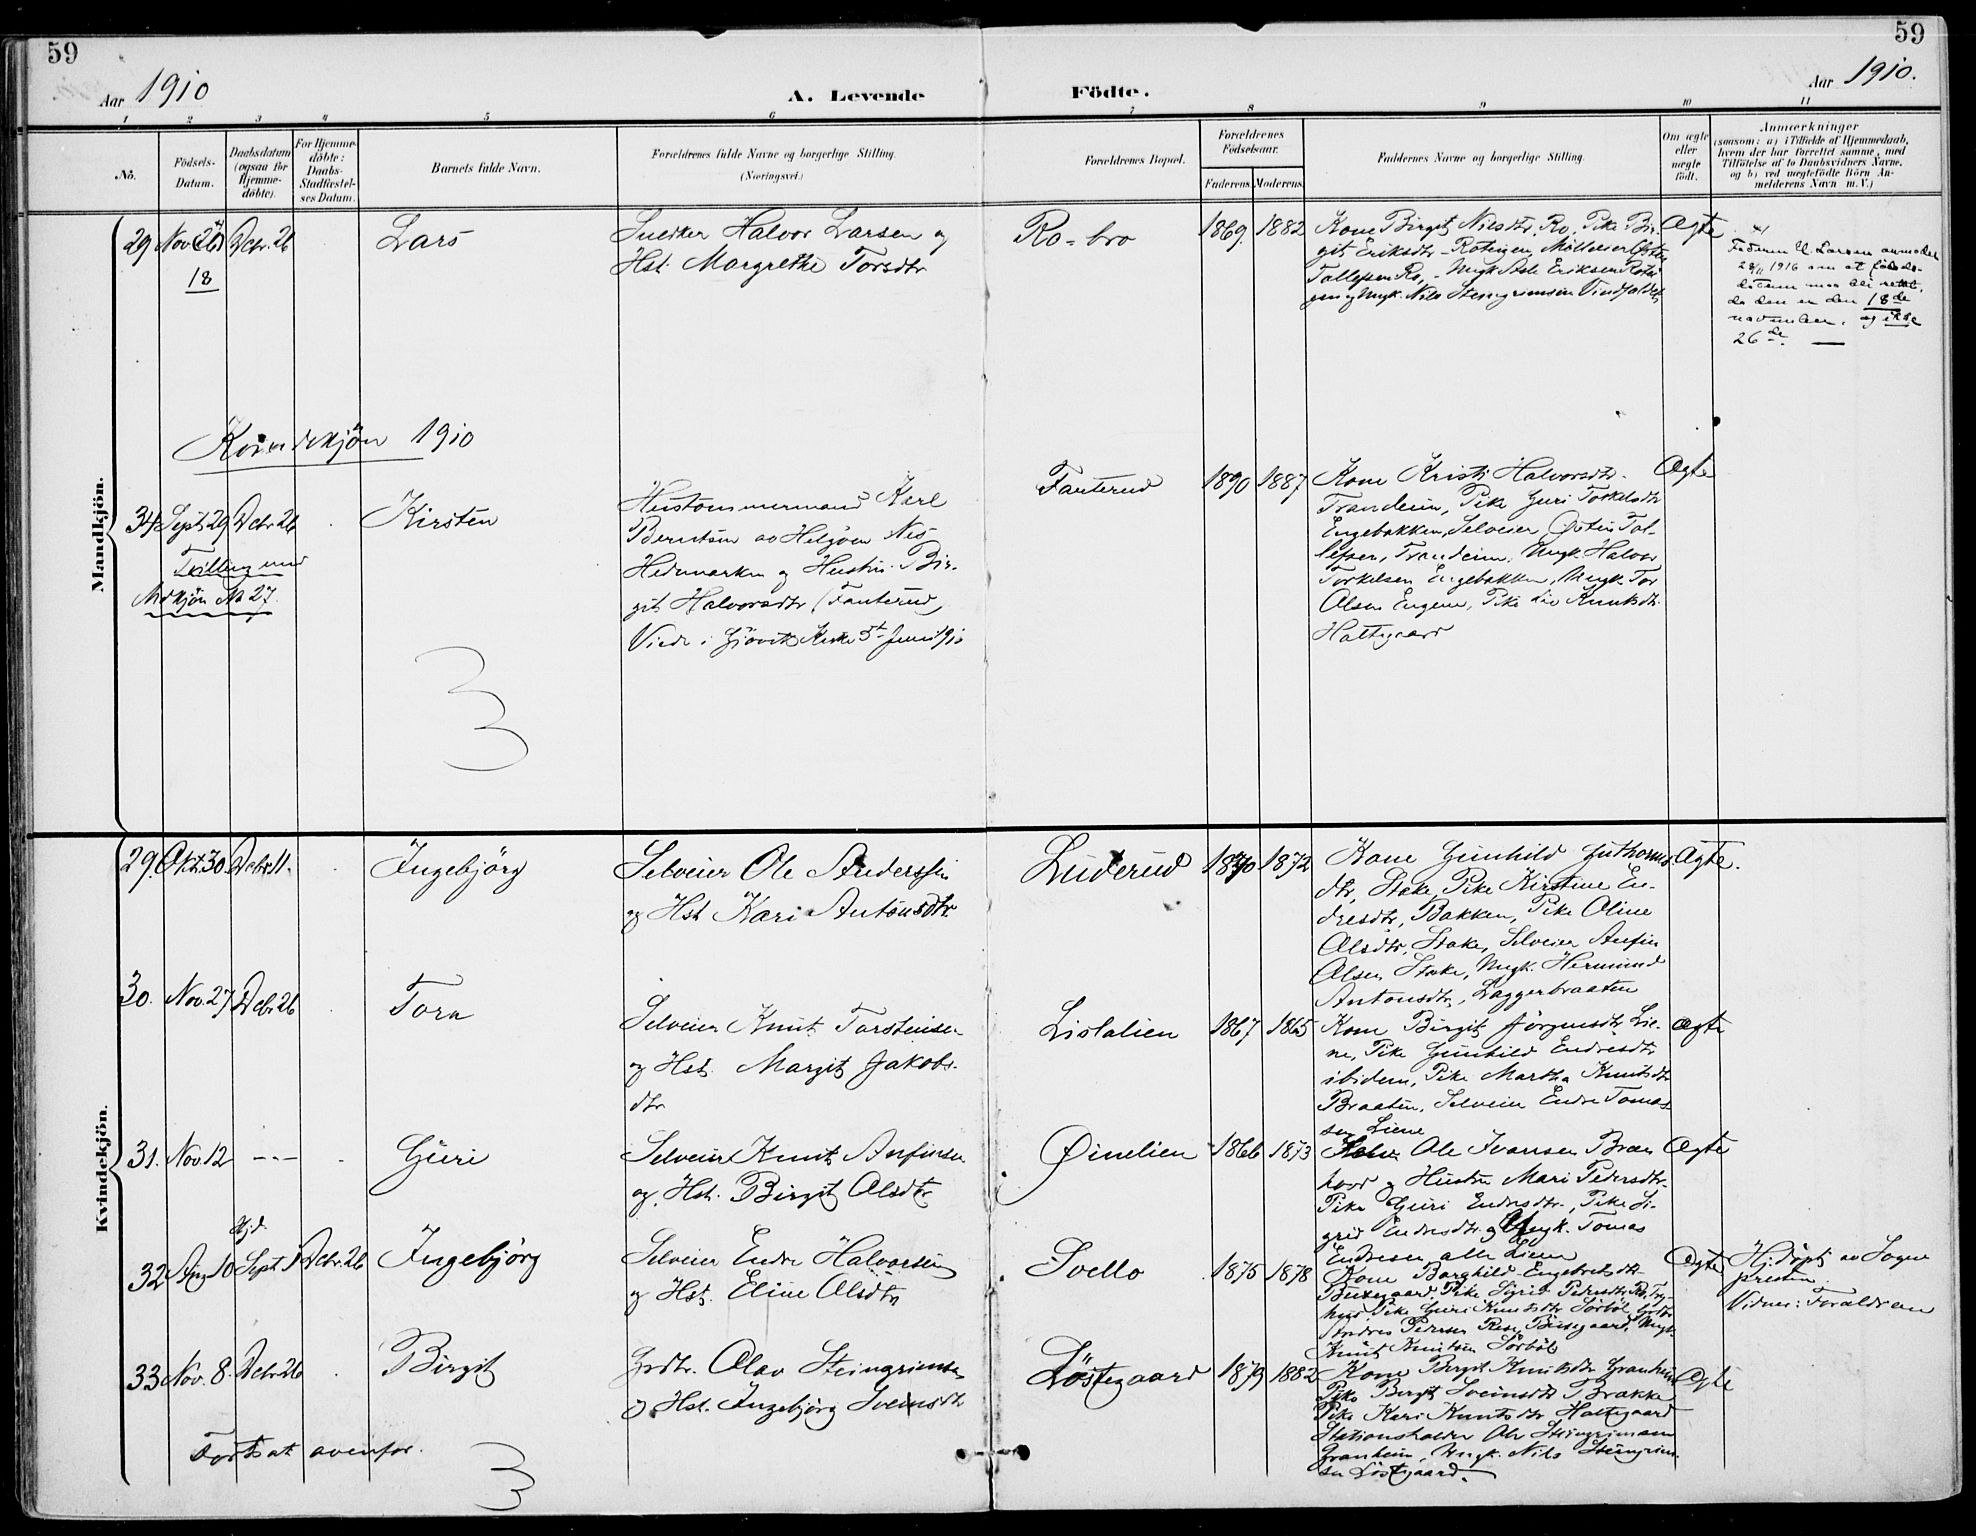 59
59
Aar 1910
A. Levende
Födte.
Aar 1910.
1 2 3 4 5 6 7 8 9 10 11
No.
Födsels-
Datum.
Daabsdatum
(ogsaa for
Hjemme-
döbte).
For Hjemme-
döbte:
Daabs-
Stadfæstel-
ses Datum.
Barnets fulde Navn.
Forældrenes fulde Navne og borgerlige Stilling.
(Næringsvei.)
Forældrenes Bopæl.
Forældrenes
Födselsaar.
Faderens. Moderens.
Faddernes Navne og borgerlige Stilling.
Om ægte
eller
uægte
födt.
Anmærkninger
(saasom: a) i Tilfælde af Hjemmedaab,
hvem der har forrettet samme, med
Tilföielse af to Daabsvidners Navne,
og b) ved uægtefödte Börn An-
melderens Navn m. V.)
Mandkjön.
29 Nov. 26 Dcbr. 26
18
Lars
Snedker Halvor Larsen og
Hst. Margrethe Torsdtr
Ro-bro
1869. 1882
Kone Birgit Nilsdtr. Ro, Pike Bir-
git Eriksdtr Rotegen,
Tollefsen Ro, Ungk. Asle Eriksen
og Ungk. Nils Steingrimsen
Ægte
Faderen H. Larsen anmeldte
28/11 1916 om at föds-
datum maa bli rettet,
da den er den 18de
november, og ikke
26de.
Kvindekjön 1910
34 Sept. 29 Dcbr. 26
Tvilling med
Mdkjön No 27.
Kirsten
Hustömmermand Karl
Berntsen av Helgöen Nes
Hedemarken og Hustru Bir-
git Halvorsdtr (Fanterud,
Viede i Gjövik Kirke 5t Juni 1910
Fanterud
1890 1887
Kone Kristi Halvorsdtr.
Trandeim, Pike Guri Torkelsdtr
Engebakken, Selveier Östen Tol-
lefsen, Trandeim, Ungk. Halvor
Torkelsen Engebakken, Ungk. Tor
Olsen Engene, Pike Liv Knutsdtr.
Haltegaard
Ægte
3
Kvindekjön.
29. Okt. 30. Dcbr. 11.
Ingebjörg
Selveier Ole Anderssen
og Hst Kari Antonsdtr.
Luterud
1870 1872
Kone Gunhild Guthorms-
dtr, Stake, Pike Kirstine En-
dresdtr, Bakken, Pike Oline
Olsdtr, Stake, Selveier Anfin
Olsen Stake, Ungk. Hermund
Antonsdtr, Laggerbraaten
Ægte.
30. Nov. 27 Dcbr. 26
Tora
Selveier Knut Torsteinsen
og Hst. Margit Jakobs-
dtr
Lislalien
1867 1865
Kone Birgit Jörgensdtr Lie-
ne, Pike Gunhild Endresdtr
ibidem, Pike Martha Knutsdtr
Braaten, Selveier Endre Tomas-
sen Liene
Ægte
31. Nov. 12 - - -
Guri
Selveier Knut Anfinsen
og Hst. Birgit Olsdtr.
Öinelien
1866 1873
Ole Ivarsen Bræn-
hovd og Hustru Mari Pedersdtr.
Pike Guri Endresdtr., Pike Si-
grid Endresdtr. og Ungk. Tomas
Endresen alle Liene
Ægte
32 Aug. 10 Hjd. Sept. 1 Dcbr. 26
Ingebjörg
Selveier Endre Halvorsen
og Hst. Eline Olsdtr
Svello
1875 1878
Kone Borghild Engebretsdtr
Beisegaard, Pike Sigrid Pedersdtr,
Pike Guri Knutsdtr Sörböl,
Andres Pedersen Beisegaard, Ungk.
Knut Knutsen Sörböl
Ægte
Hj. döpt av Sogne
presten.
Vidner: Foraldrene
33 Nov. 8. Dcbr. 26
Birgit
Grdbr. Olav Steingrimsen
og Hst. Ingebjörg Sveinsdtr
Löstegaard
1879 1882
Kone Birgit Knutsdtr Granheim
Pike Birgit Sveinsdtr Brakke
Pike Kari Knutsdtr Haltegaard
Stationsholder Ole Steingrimsen
Granheim, Ungk. Nils Steingrim-
sen Löstegaard.
Ægte
Fortsat ovenfor.
3